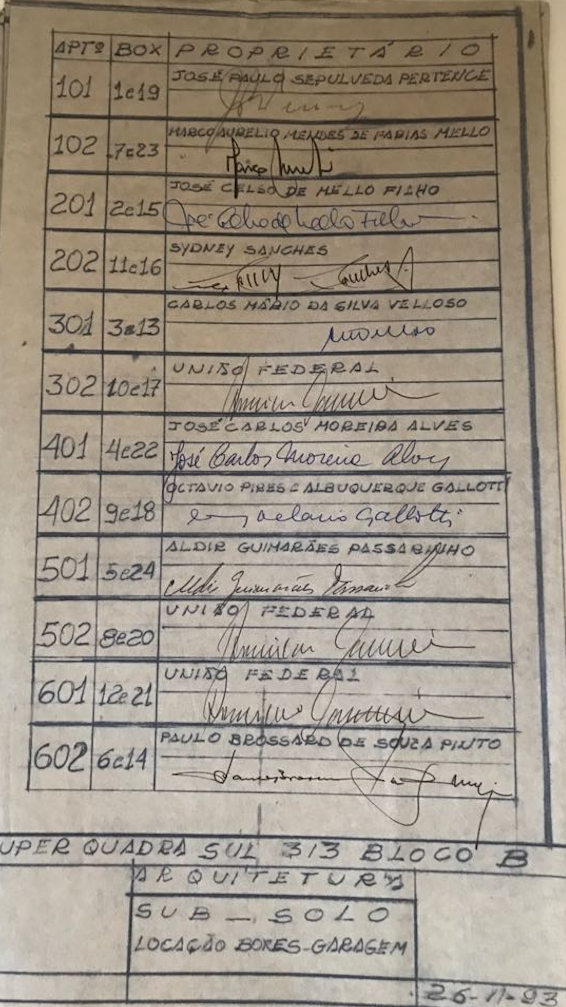 APTº BOX PROPRIETÁRIO
101 1e19 JOSÉ PAULO SEPULVEDA PERTENCE
102 7e23 MARCO AURELIO MENDES DE FARIAS MELLO
201 2e15 JOSÉ CELSO DE MELLO FILHO
José Celso de Mello Filho
202 11e16 SYDNEY SANCHES
Sydney Sanches
301 3e13 CARLOS MÁRIO DA SILVA VELLOSO
302 10e17 UNIÃO FEDERAL
401 4e22 JOSÉ CARLOS MOREIRA ALVES
José Carlos Moreira Alves
402 9e18 OCTAVIO PIRES E ALBUQUERQUE GALLOTTI
Octavio Gallotti
501 5e24 ALDIR GUIMARÃES PASSARINHO
Aldir Guimarães Passarinho
502 8e20 UNIÃO FEDERAL
601 12e21 UNIÃO FEDERAL
602 6e14 PAULO BROSSARD DE SOUZA PINTO
UPER QUADRA SUL 313 BLOCO B
ARQUITETURA
SUB-SOLO
LOCAÇÃO BOXES-GARAGEM
26-11-93